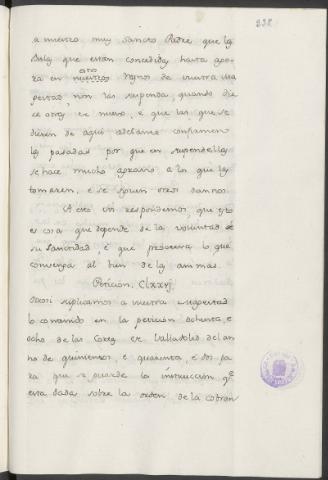 238
a nuestro muy Sancto Padre que las
Bulas que estan concedidas hasta ago-
ra en nuestros Reynos de vuestra Ma
gestad, non las suspenda, quando die
re otras de nuevo, e que las que se
dieren de aqui adelante confirmen
las pasadas por que en suspendellas
se hace mucho agravio a los que las
tomaren, e se siguen otros daños.
A esto vos respondemos, que esta
es cosa que depende de la voluntad de
su Sanctidad, e que proveera lo que
convenga al bien de las animas.
Peticion. Clxxvj.
Otrosi suplicamos a vuestra magestad
lo contenido en la peticion ochenta, e
ocho de las Cortes de Valladolid del an
no de quinientos, e quarenta, e dos pa
ra que se guarde la instruccion q.e
esta dada sobre la orden de la cobran